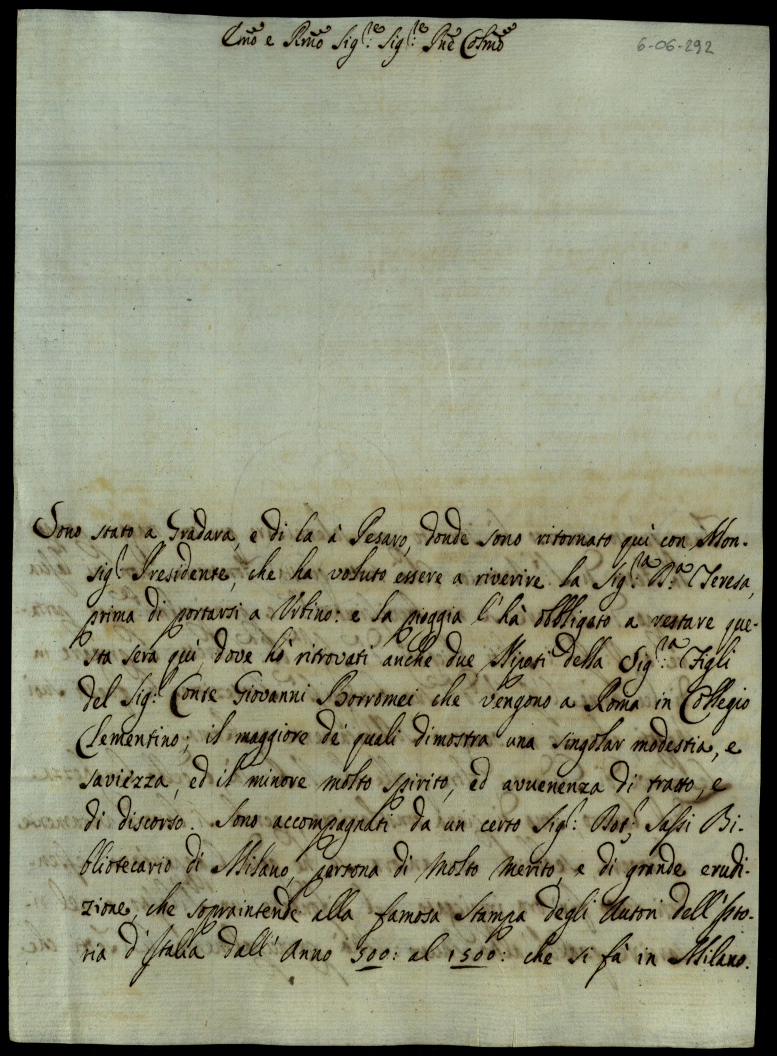 Emõ e Rmõ Sig.re Sig.re Pñe Colmõ
6-06-292
Sono stato a Gradara, e di la à Pesaro, donde sono ritornato quì con Mon-
sig.r Presidente, che ha voluto essere a riverire la Sig.ra D.a Teresa,
prima di portarsi a Urbino: e la pioggia l'hà obbligato a restare que-
sta sera quì, dove hò ritrovati anche due Nipoti della Sig.ra Figli
del Sig.r Conte Giovanni Borromei che vengono a Roma in Collegio
Clementino; il maggiore de' quali dimostra una singolar modestia, e
saviezza, ed il minore molto spirito, ed avvenenza di tratto, e
di discorso. Sono accompagnati da un certo Sig.r Dot.r Sassi Bi-
bliotecario di Milano, persona di molto merito, e di grande erudi-
zione, che sopraintende alla famosa stampa degli Autori dell'Isto-
ria d'Italia dall'Anno 500: al 1500: che si fà in Milano.